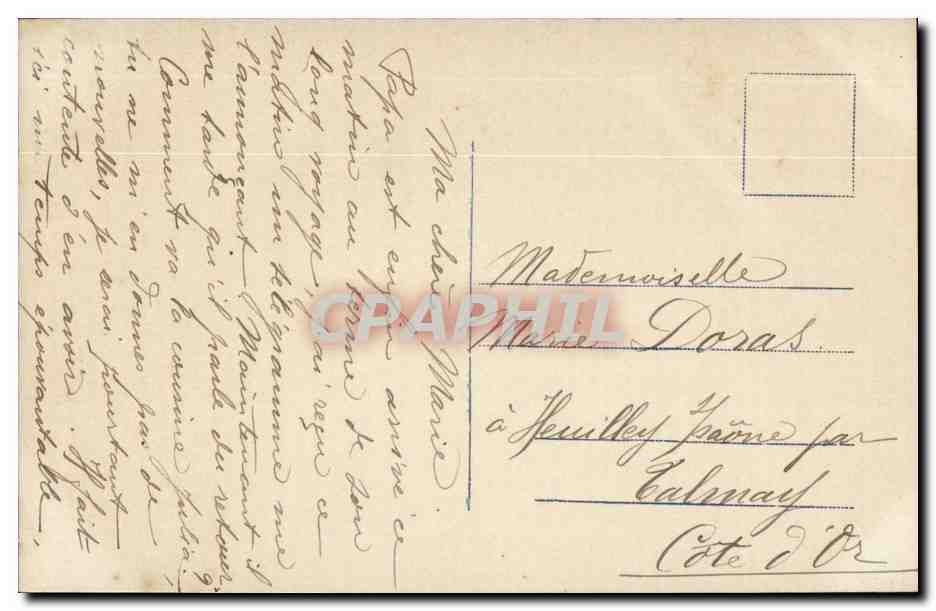 Ma chère Marie
Papa est enfin arrivé ce
matin au terme de son
long voyage, j'ai reçu ce
matin un télégramme me
l'annonçant. Maintenant il
me tarde qu'il parle du retour.
Comment va la cousine Julia?
tu ne m'en donnes pas de
nouvelles, je serai pourtant
contente d'en avoir. Il fait
ici un temps épouvantable.
Mademoiselle
Marie Doras.
à Heuilley s/Saône par
Talmay
Côte d'Or
CPAPHIL